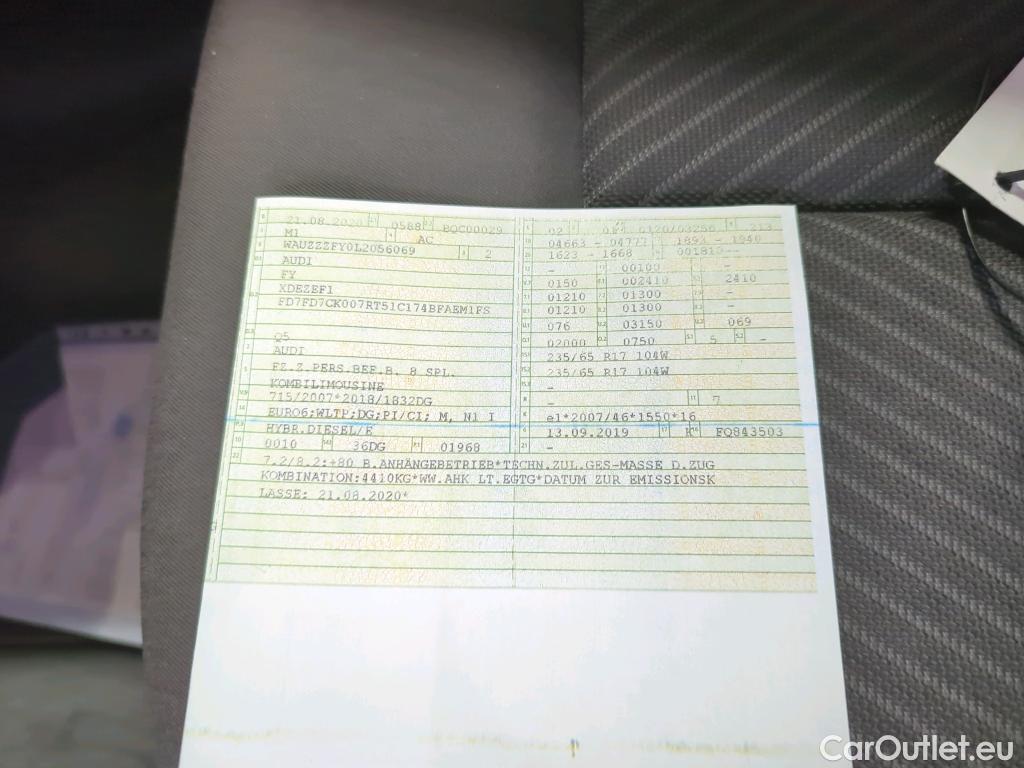 21.08.2020 0588 BQC00029
M1 AC
WAUZZZFY0L2056069 2
AUDI
FY
XDEZEF1
FD7FD7CK007RT51C174BFAEM1FS
Q5
AUDI
FZ.Z.PERS.BEF.B. 8 SPL.
KOMBILIMOUSINE
715/2007*2018/1832DG
EURO6;WLTP;DG;PI/CI; M, N1 I
HYBR.DIESEL/E
0010 36DG 01968
02 0120/03256 213
04663 - 04771 1893 - 1940
1623 - 1668
- 00100 -
0150 002410 2410
01210 01300 -
01210 01300 -
076 03150 069
02000 0750 5 -
235/65 R17 104W
235/65 R17 104W
-
- 7
e1*2007/46*1550*16
13.09.2019 K FQ843503
-
7.2/8.2:+80 B.ANHÄNGEBETRIEB*TECHN.ZUL.GES-MASSE D.ZUG
KOMBINATION:4410KG*WW.AHK LT.EGTG*DATUM ZUR EMISSIONSK
LASSE: 21.08.2020*
CarOutlet.eu